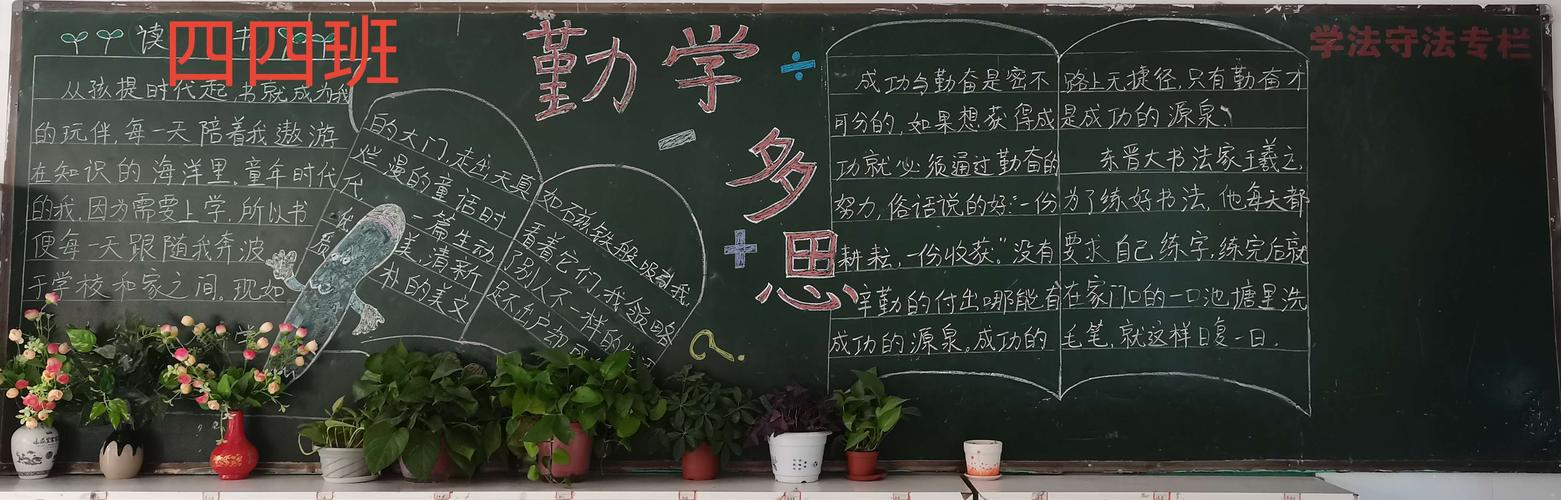 四四班
读书
从孩提时代起,书就成为我
的玩伴,每一天陪着我遨游
在知识的海洋里,童年时代
的我,因为需要上学,所以书
便每一天跟随我奔波
于学校和家之间。现如
的大门,走出天真
烂漫的童话时
代
一篇生动
美,清新
朴的美文
如石磁铁般吸着我,
看着它们,我领略
了别人不一样的
足不出户却
勤学
多
思
成功与勤奋是密不
可分的,如果想获得成
功就必须通过勤奋的
努力,俗话说的好:“一份
耕耘,一份收获。”没有
辛勤的付出哪能有
成功的源泉。成功的
路上无捷径,只有勤奋才
是成功的源泉,
东晋大书法家王羲之,
为了练好书法,他每天都
要求自己练字,练完后就
在家门口的一口池塘里洗
毛笔,就这样日复一日.
学法守法专栏